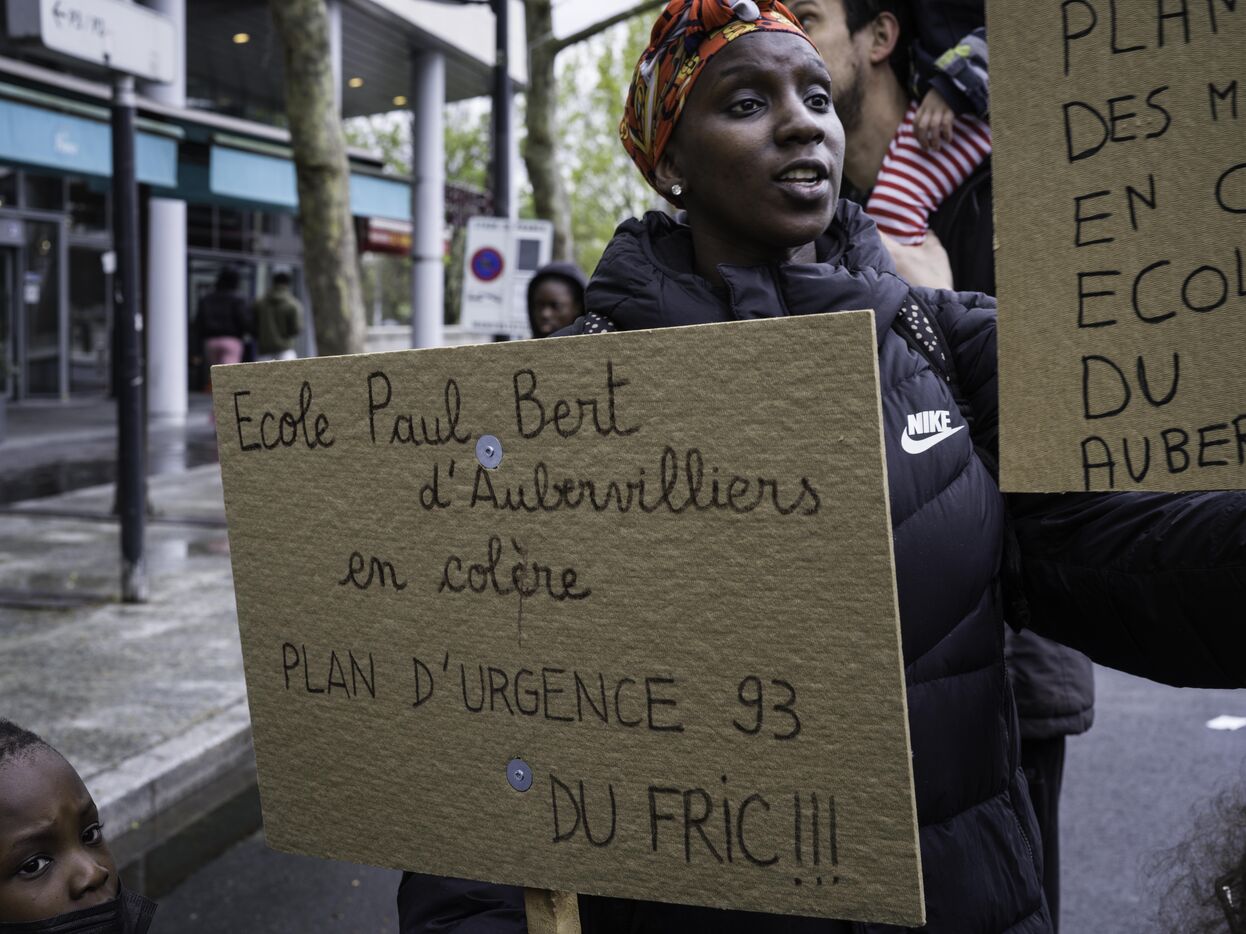 Ecole Paul Bert
d'Aubervilliers
en colère
PLAN D'URGENCE 93
DU FRIC !!!
NIKE
PLAN
DES
EN
ECOL
DU
AUBER